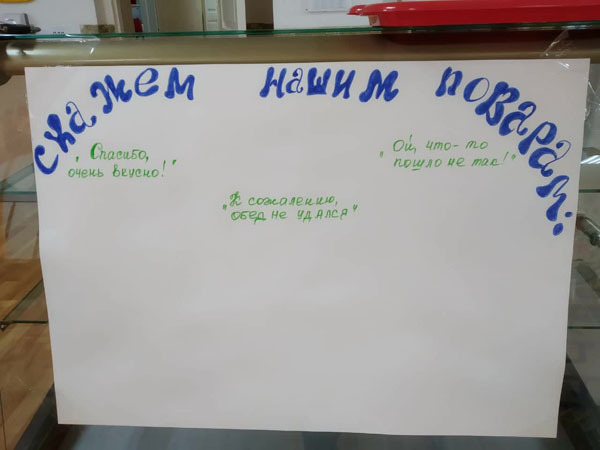 скажем нашим поварам:
"Спасибо,
очень вкусно!"
"К сожалению,
обед не удался"
"Ой, что-то
пошло не так!"